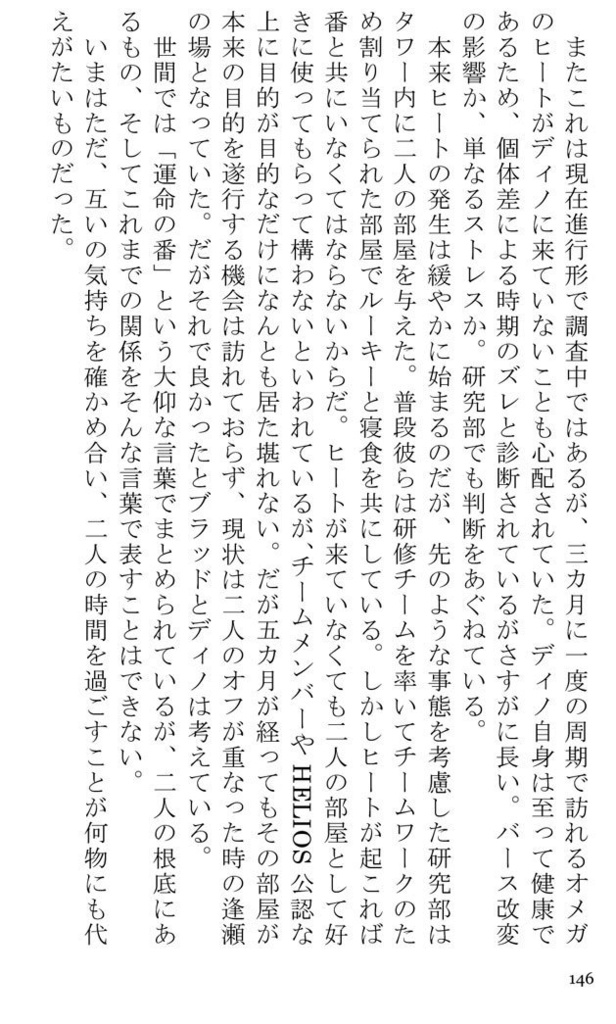 またこれは現在進行形で調査中ではあるが、三カ月に一度の周期で訪れるオメガ
のヒートがディノに来ていないことも心配されていた。ディノ自身は至って健康で
あるため、個体差による時期のズレと診断されているがさすがに長い。バース改変
の影響か、単なるストレスか。研究部でも判断をあぐねている。
本来ヒートの発生は緩やかに始まるのだが、先のような事態を考慮した研究部は
タワー内に二人の部屋を与えた。普段彼らは研修チームを率いてチームワークのた
め割り当てられた部屋でルーキーと寝食を共にしている。しかしヒートが起これば
番と共にいなくてはならないからだ。ヒートが来ていなくても二人の部屋として好
きに使ってもらって構わないといわれているが、チームメンバーや HELIOS 公認な
上に目的が目的なだけになんとも居た堪れない。だが五カ月が経ってもその部屋が
本来の目的を遂行する機会は訪れておらず、現状は二人のオフが重なった時の逢瀬
の場となっていた。だがそれで良かったとブラッドとディノは考えている。
世間では「運命の番」という大仰な言葉でまとめられているが、二人の根底にあ
るもの、そしてこれまでの関係をそんな言葉で表すことはできない。
いまはただ、互いの気持ちを確かめ合い、二人の時間を過ごすことが何物にも代
えがたいものだった。
146